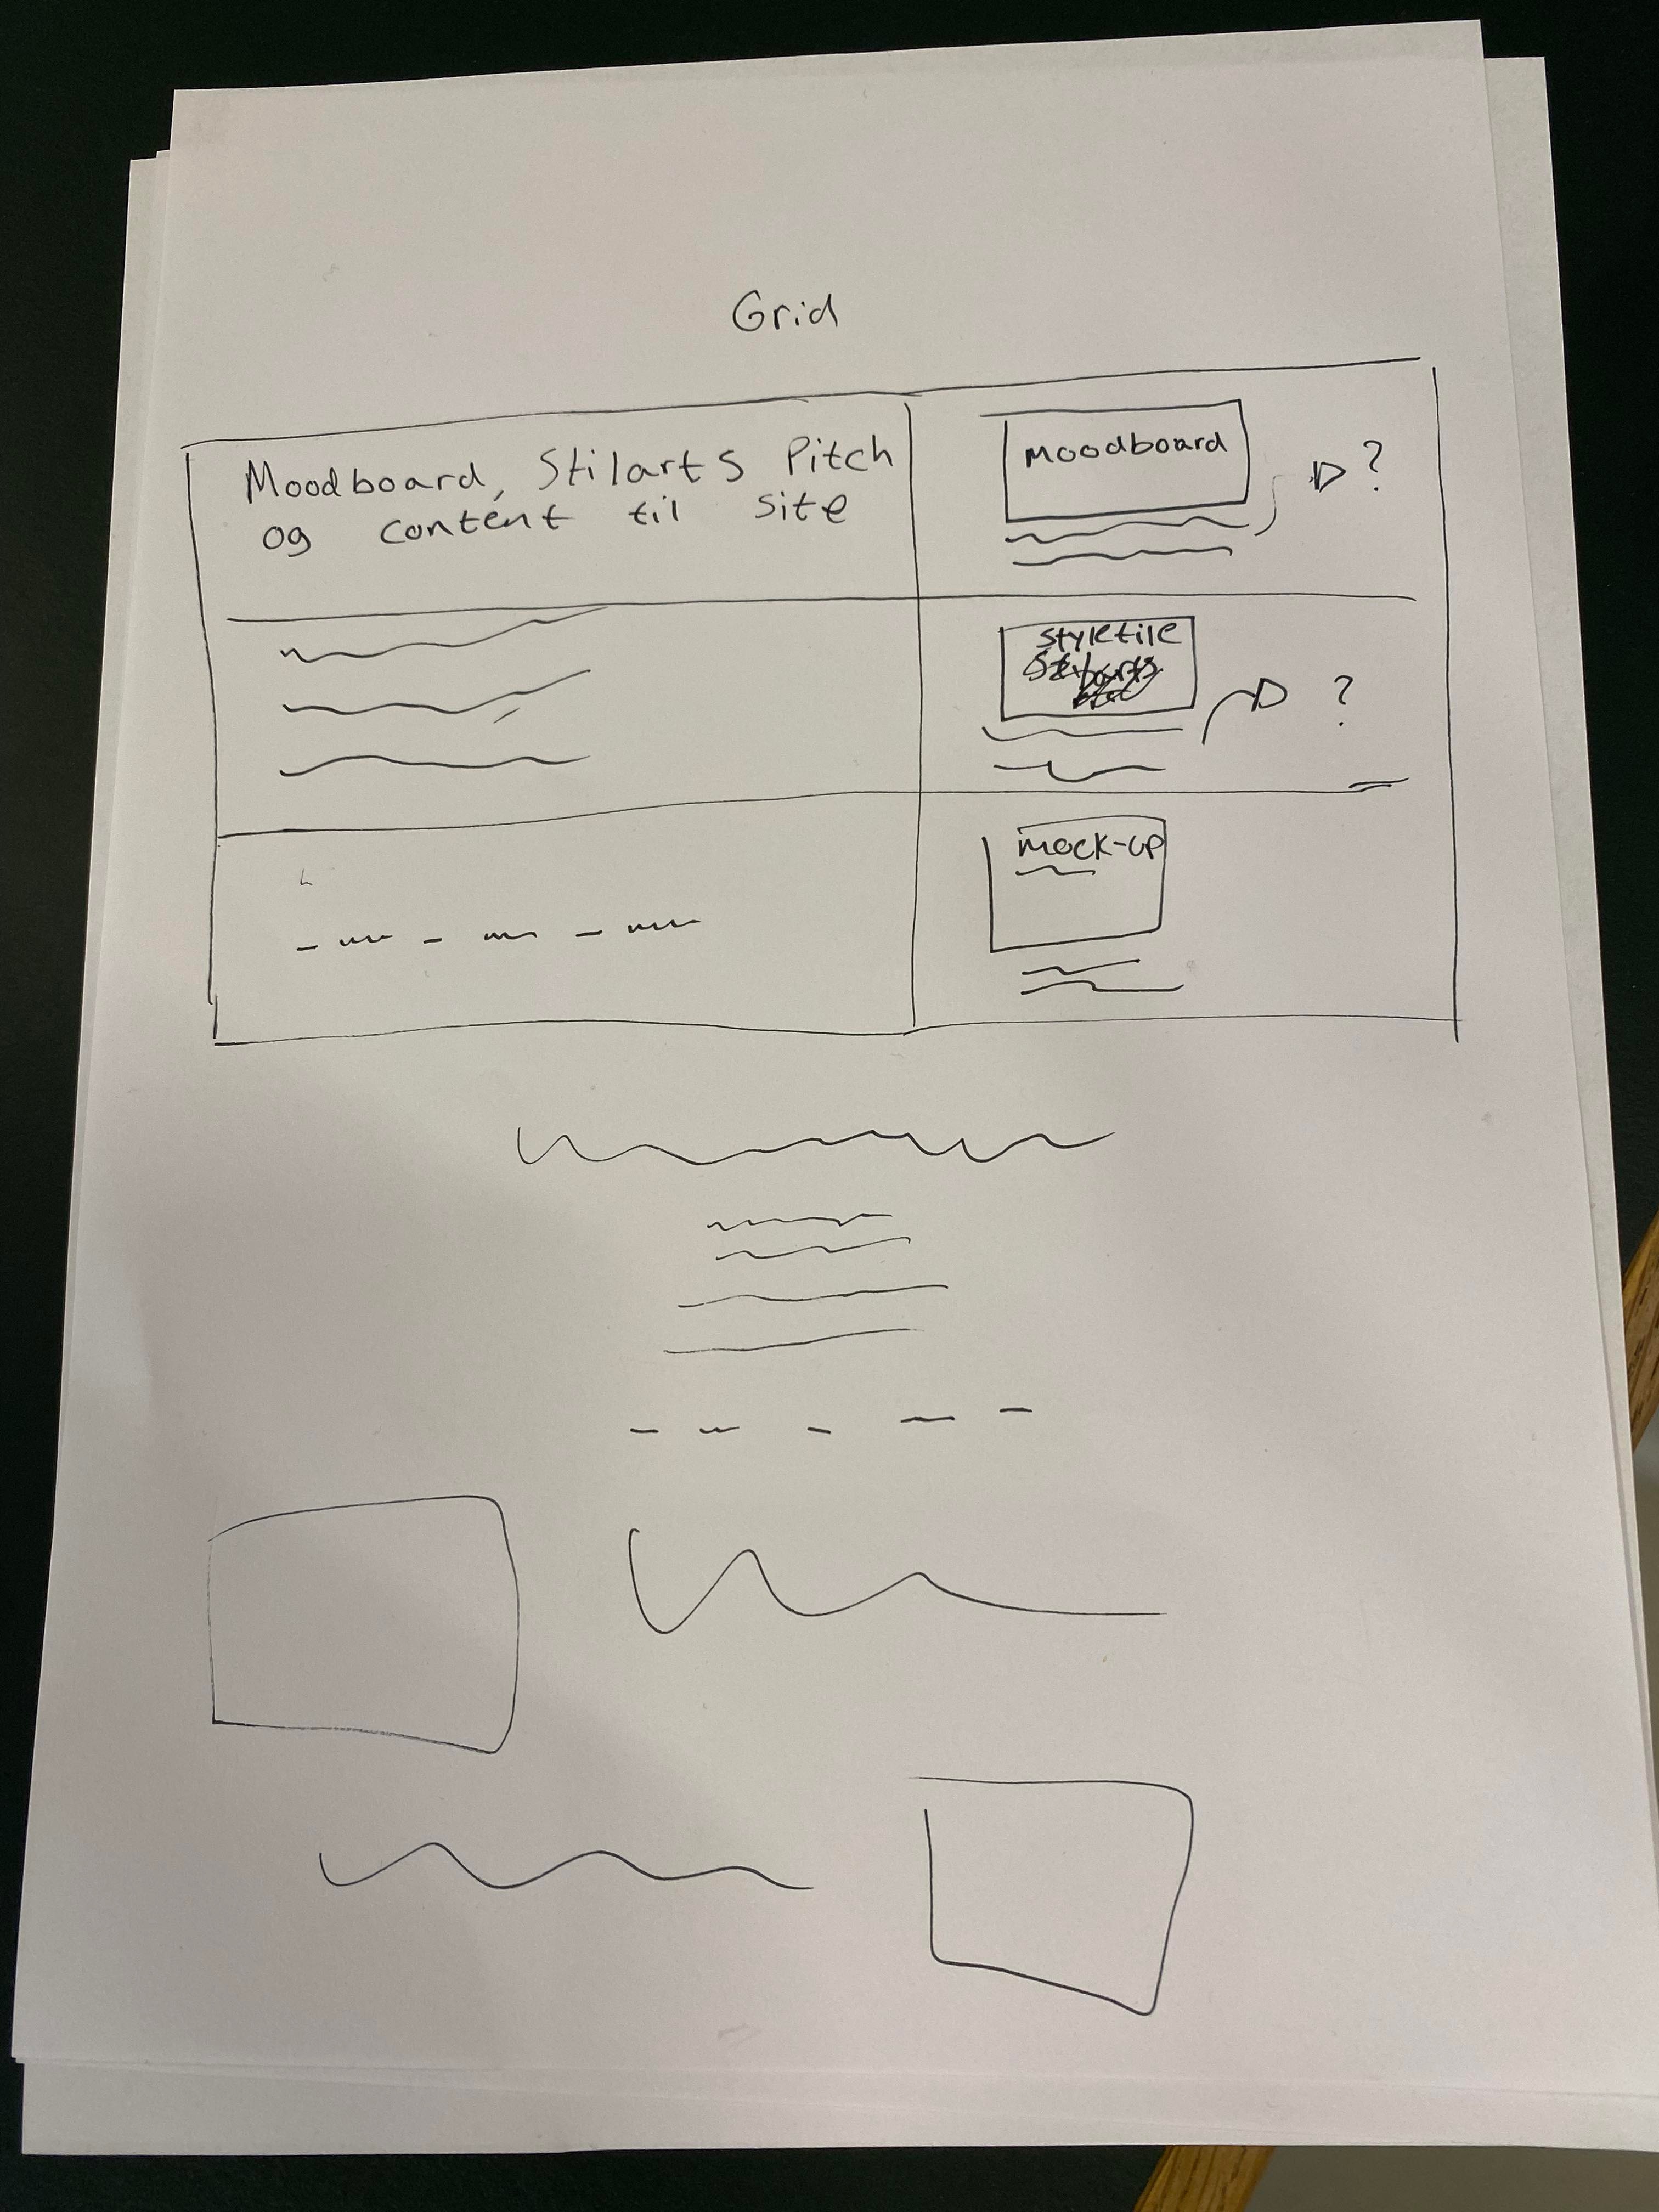 Grid
Moodboard, Stilarts Pitch
og content til site
Moodboard
?
styletile
?
mock-up